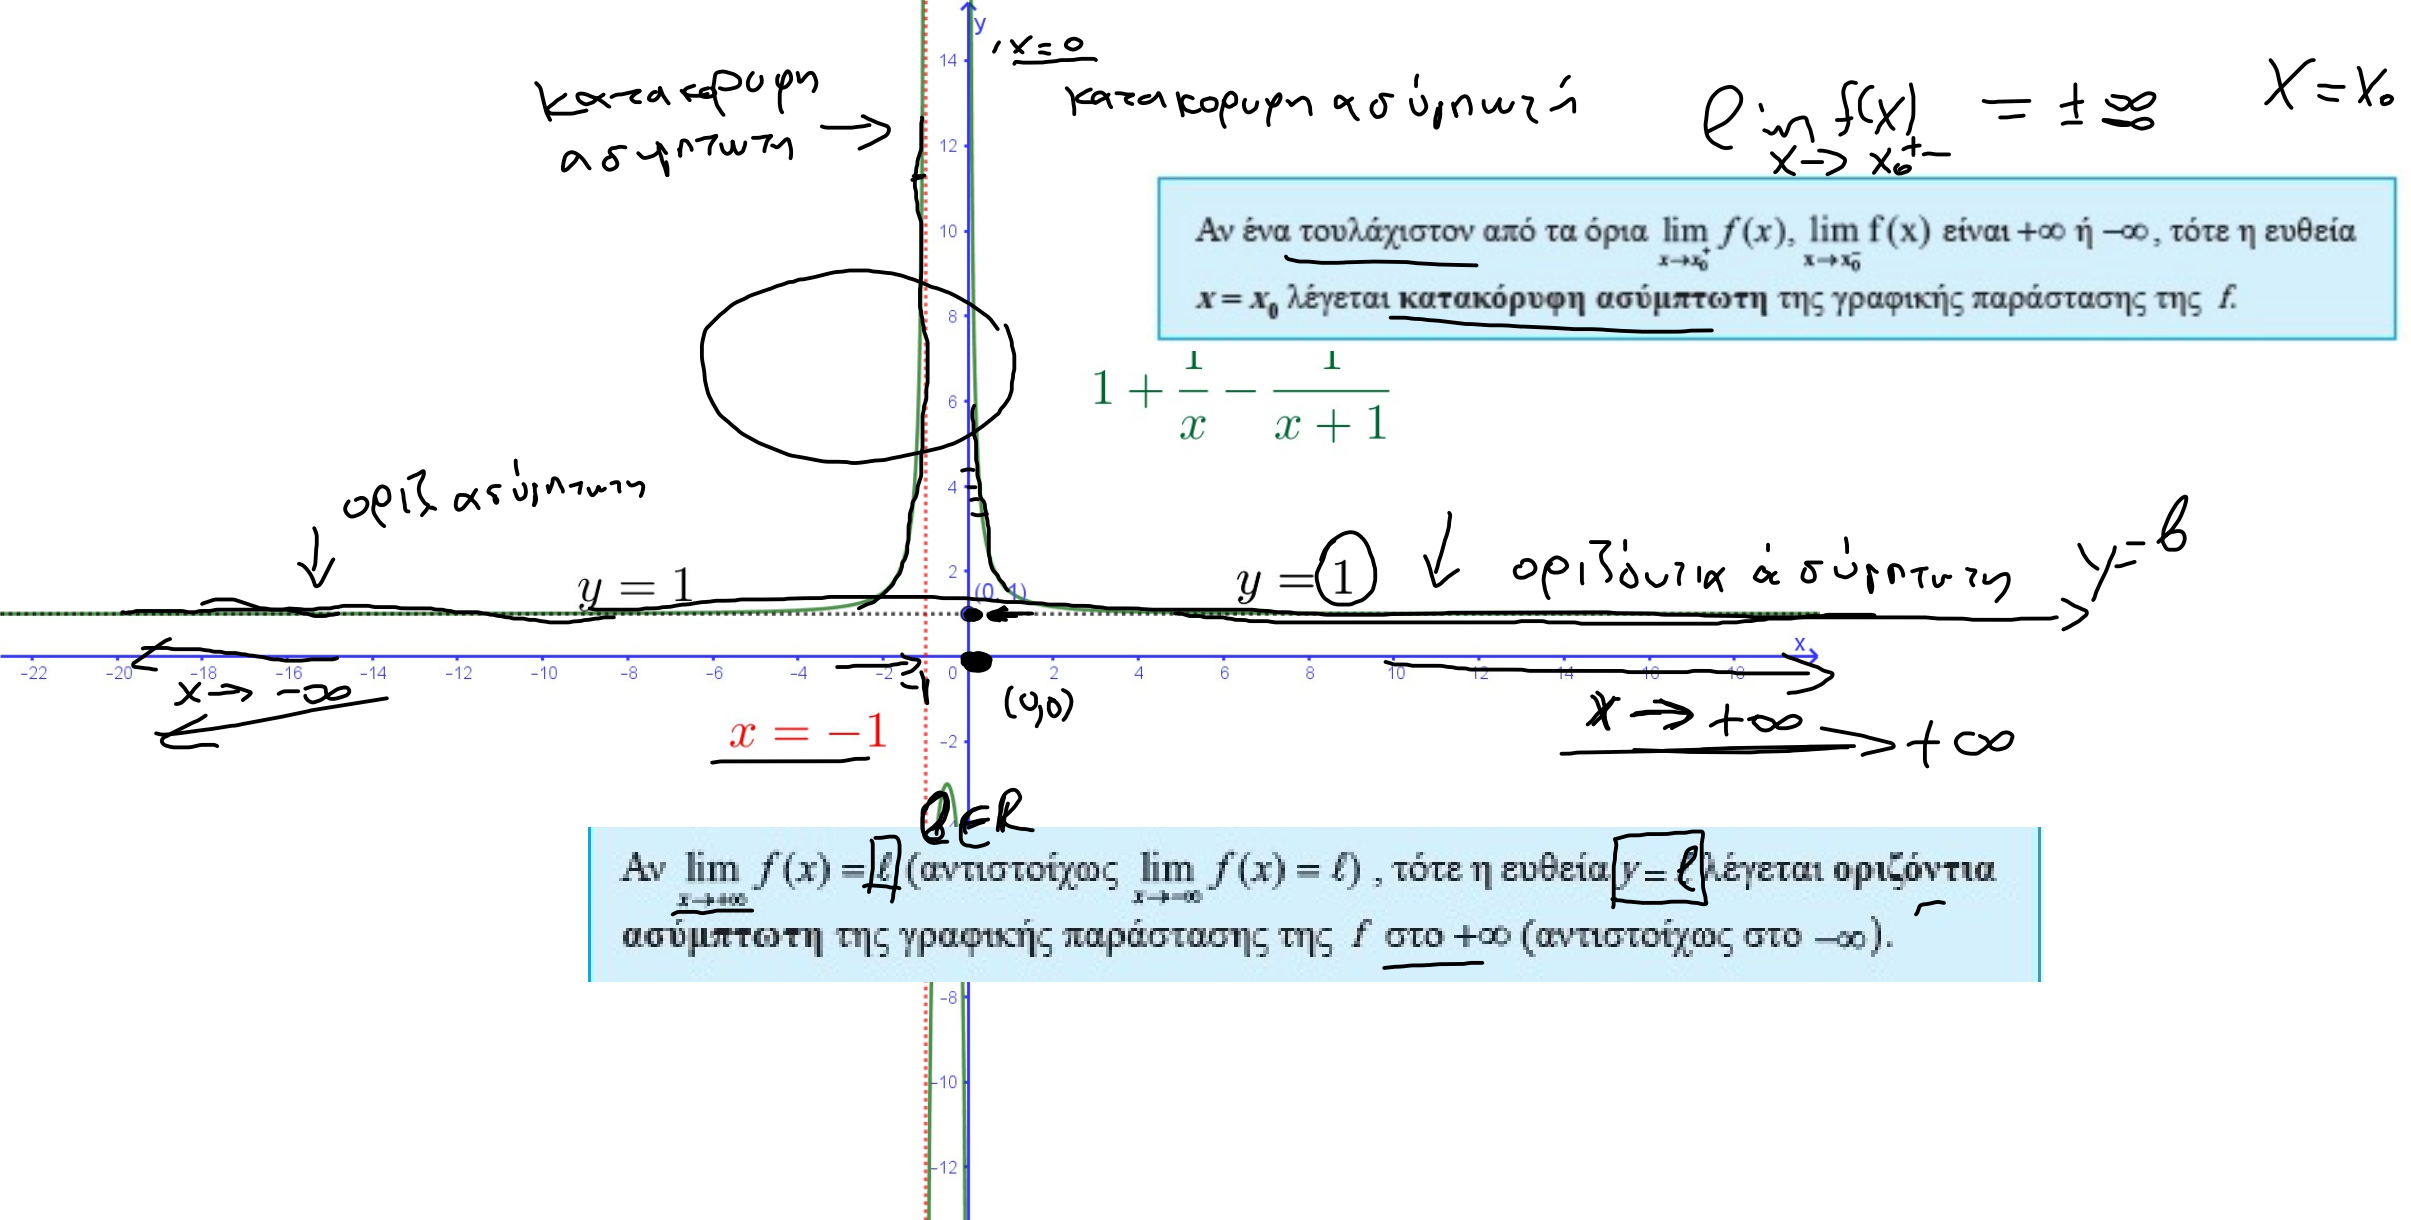 y
, x = 0
14
κατακορυφη
ασυμπτωτη →
κατακορυφη ασύμπτωτή
lim f(x) = ± ∞
x → x₀⁺⁻
X = X₀
12
Αν ένα τουλάχιστον από τα όρια lim f(x), lim f(x) είναι +∞ ή −∞, τότε η ευθεία
x→x₀⁺ x→x₀⁻
x = x₀ λέγεται κατακόρυφη ασύμπτωτη της γραφικής παράστασης της f.
10
8
1 + 1/x − 1/(x + 1)
6
4
οριζ ασύμπτωτη
↓
y = 1
2
(0, 1)
y = 1
↓ οριζόντια άσύμπτωτη
y = l
x
-22 -20 -18 -16 -14 -12 -10 -8 -6 -4 -2 0 2 4 6 8 10 12 14 16 18
-1
(0,0)
x → -∞
x → +∞
+∞
x = −1
-2
l ∈ R
Αν lim f(x) = ℓ (αντιστοίχως lim f(x) = ℓ) , τότε η ευθεία y = ℓ λέγεται οριζόντια
x→+∞ x→−∞
ασύμπτωτη της γραφικής παράστασης της f στο +∞ (αντιστοίχως στο −∞).
-8
-10
-12